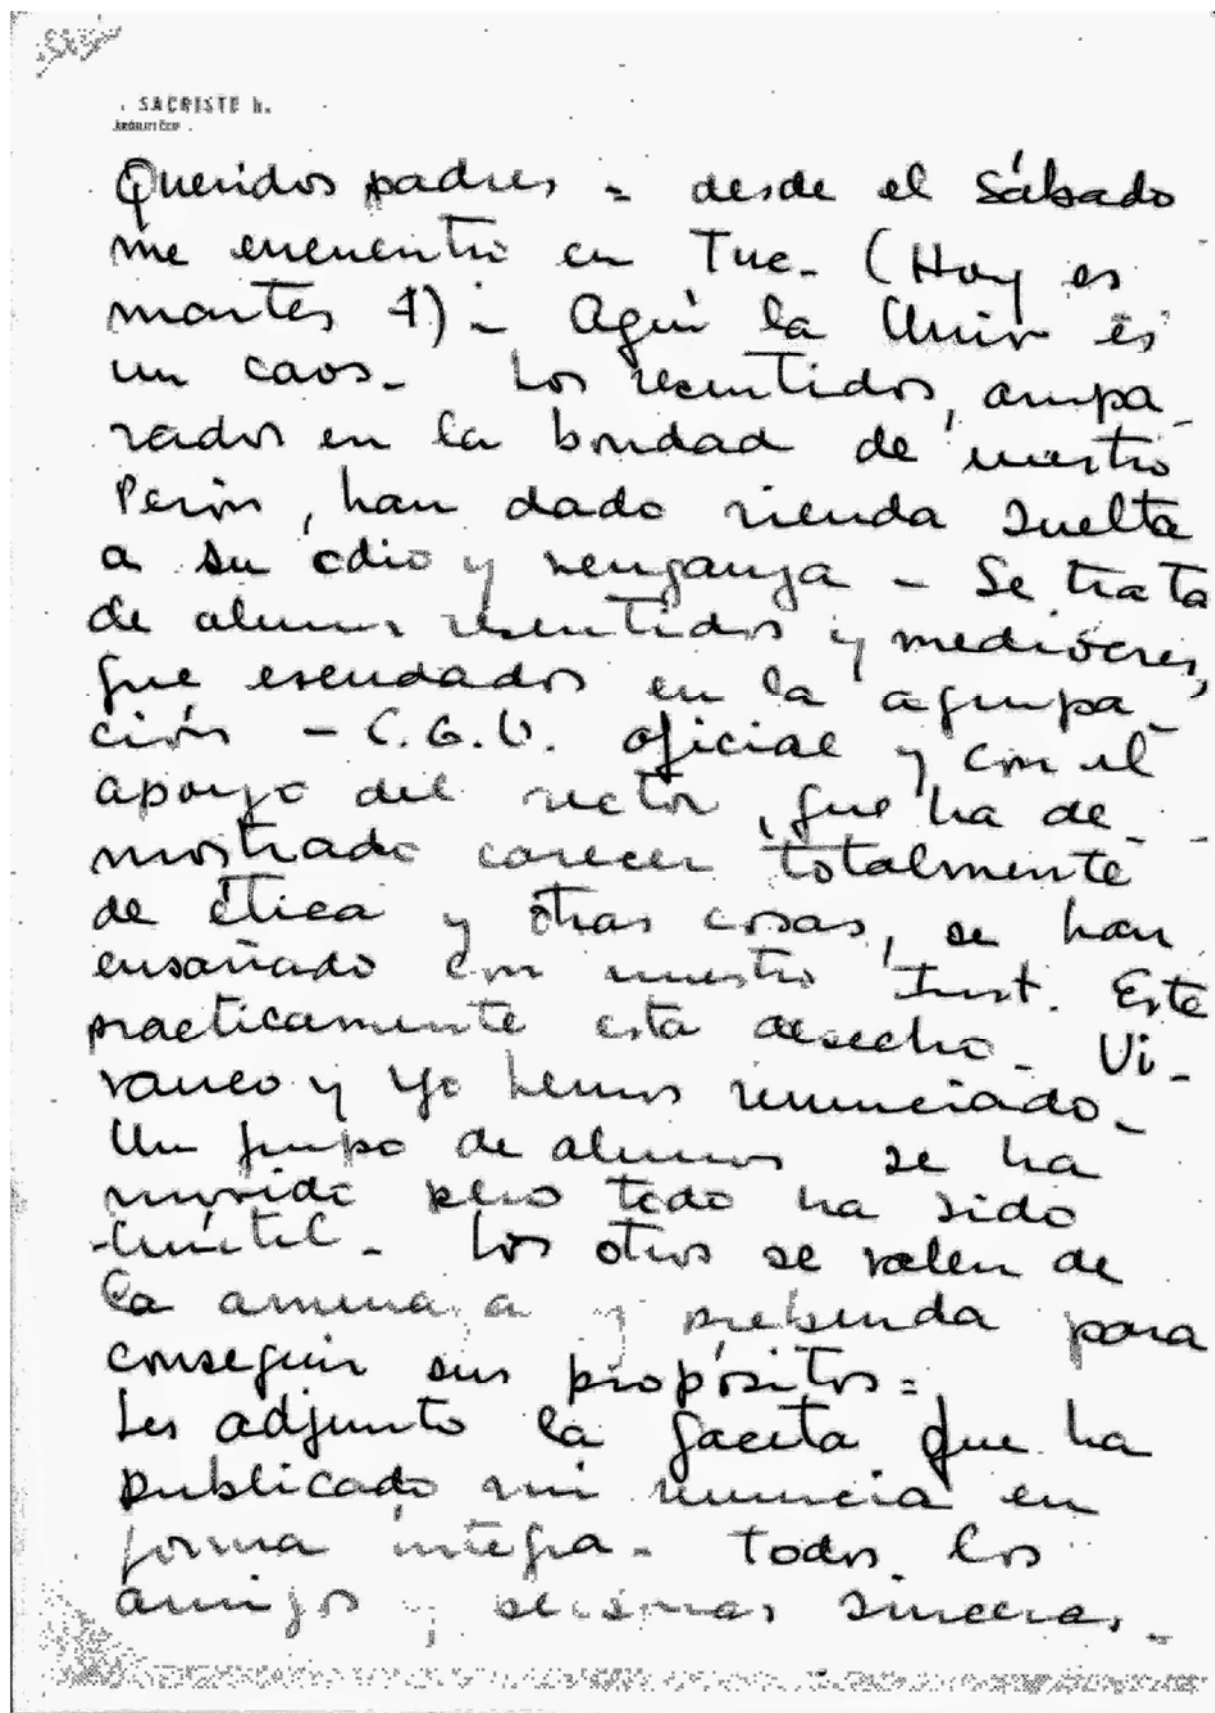 SACRISTE h.
Queridos padres = desde el sábado
me encuentro en Tuc. (Hoy es
martes 1) - Aquí la Univ es
un caos - Los resentidos, ampa_
rados en la bondad de nuestro
Perón, han dado rienda suelta
a su odio y venganza - Se trata
de alumnos resentidos y mediocres,
que escudados en la agrupa_
ción - C.G.U. oficial y con el
apoyo del rector, que ha de_
mostrado carecer totalmente
de ética y otras cosas, se han
ensañado con nuestro Inst. Este
practicamente esta desecho - Vi_
vanco y yo hemos renunciado -
Un grupo de alumnos se ha
movido pero todo ha sido
inútil - Los otros se valen de
la amenaza y prebenda para
conseguir sus propósitos =
Les adjunto la gaceta que ha
publicado mi renuncia en
forma íntegra - Todos los
amigos y sinceras -